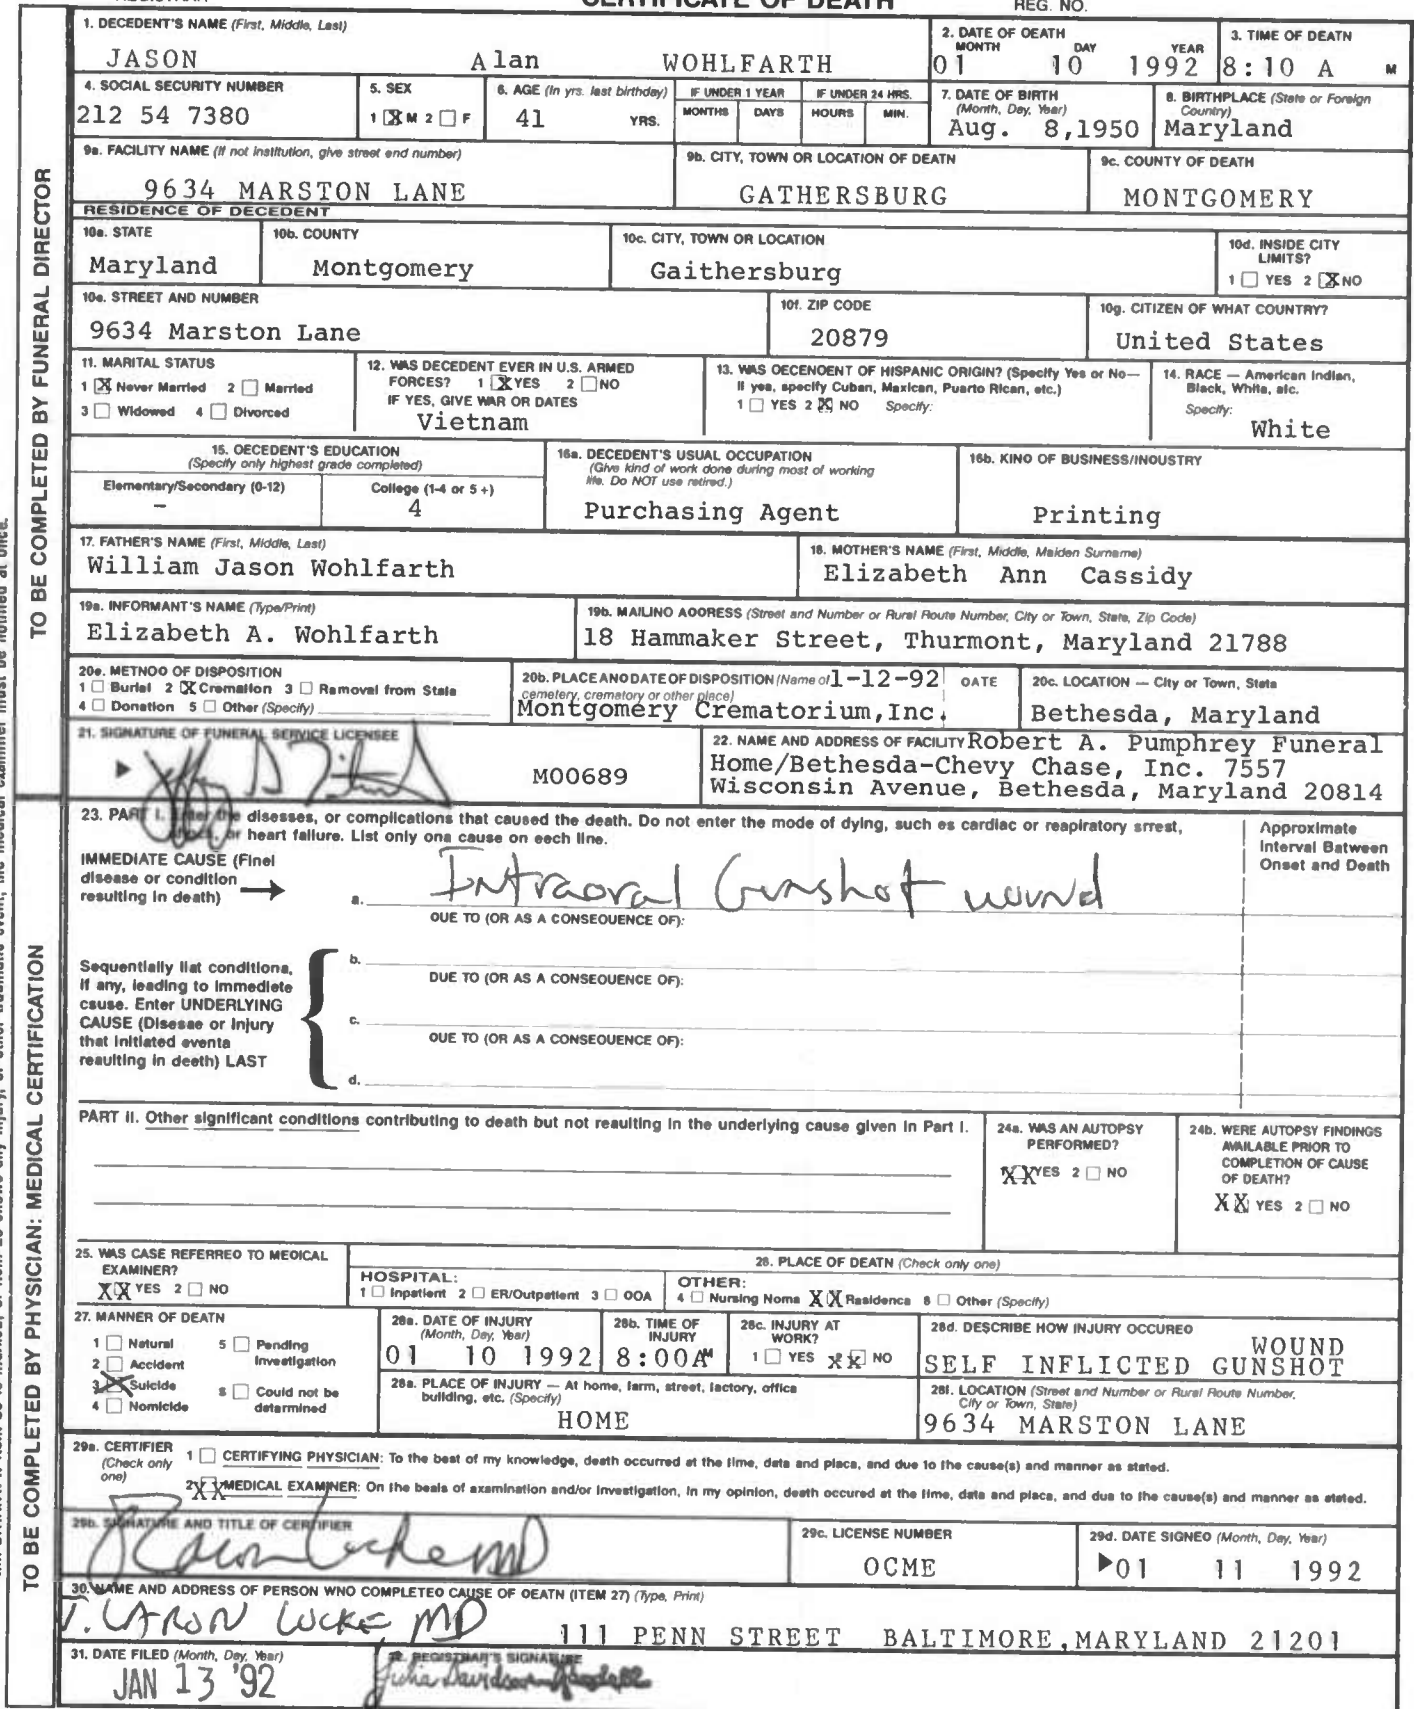 CERTIFICATE OF DEATH
REG. NO.
1. DECEDENT'S NAME (First, Middle, Last)
JASON Alan WOHLFARTH
2. DATE OF DEATH
MONTH DAY YEAR
01 10 1992
3. TIME OF DEATH
8:10 A M
4. SOCIAL SECURITY NUMBER
212 54 7380
5. SEX
1 X M 2 F
6. AGE (In yrs. last birthday)
41 YRS.
IF UNDER 1 YEAR
MONTHS DAYS
IF UNDER 24 HRS.
HOURS MIN.
7. DATE OF BIRTH
(Month, Day, Year)
Aug. 8,1950
8. BIRTHPLACE (State or Foreign
Country)
Maryland
9a. FACILITY NAME (If not institution, give street end number)
9634 MARSTON LANE
9b. CITY, TOWN OR LOCATION OF DEATH
GATHERSBURG
9c. COUNTY OF DEATH
MONTGOMERY
RESIDENCE OF DECEDENT
10a. STATE
Maryland
10b. COUNTY
Montgomery
10c. CITY, TOWN OR LOCATION
Gaithersburg
10d. INSIDE CITY
LIMITS?
1 YES 2 X NO
10e. STREET AND NUMBER
9634 Marston Lane
10f. ZIP CODE
20879
10g. CITIZEN OF WHAT COUNTRY?
United States
11. MARITAL STATUS
1 X Never Married 2 Married
3 Widowed 4 Divorced
12. WAS DECEDENT EVER IN U.S. ARMED
FORCES? 1 X YES 2 NO
IF YES, GIVE WAR OR DATES
Vietnam
13. WAS DECENDENT OF HISPANIC ORIGIN? (Specify Yes or No—
If yes, specify Cuban, Mexican, Puerto Rican, etc.)
1 YES 2 X NO Specify:
14. RACE — American Indian,
Black, White, etc.
Specify:
White
15. DECEDENT'S EDUCATION
(Specify only highest grade completed)
Elementary/Secondary (0-12)
-
College (1-4 or 5 +)
4
16a. DECEDENT'S USUAL OCCUPATION
(Give kind of work done during most of working
life. Do NOT use retired.)
Purchasing Agent
16b. KIND OF BUSINESS/INDUSTRY
Printing
17. FATHER'S NAME (First, Middle, Last)
William Jason Wohlfarth
18. MOTHER'S NAME (First, Middle, Maiden Surname)
Elizabeth Ann Cassidy
19a. INFORMANT'S NAME (Type/Print)
Elizabeth A. Wohlfarth
19b. MAILING ADDRESS (Street and Number or Rural Route Number, City or Town, State, Zip Code)
18 Hammaker Street, Thurmont, Maryland 21788
20a. METHOD OF DISPOSITION
1 Burial 2 X Cremation 3 Removal from State
4 Donation 5 Other (Specify)
20b. PLACE AND DATE OF DISPOSITION (Name of 1-12-92 DATE
cemetery, crematory or other place)
Montgomery Crematorium,Inc.
20c. LOCATION — City or Town, State
Bethesda, Maryland
21. SIGNATURE OF FUNERAL SERVICE LICENSEE
M00689
22. NAME AND ADDRESS OF FACILITY Robert A. Pumphrey Funeral
Home/Bethesda-Chevy Chase, Inc. 7557
Wisconsin Avenue, Bethesda, Maryland 20814
TO BE COMPLETED BY FUNERAL DIRECTOR
23. PART I. Enter the diseases, or complications that caused the death. Do not enter the mode of dying, such as cardiac or respiratory arrest,
shock, or heart failure. List only one cause on each line.
Approximate
Interval Between
Onset and Death
IMMEDIATE CAUSE (Final
disease or condition
resulting in death)
a. Intraoral Gunshot wound
DUE TO (OR AS A CONSEQUENCE OF):
Sequentially list conditions,
if any, leading to immediate
cause. Enter UNDERLYING
CAUSE (Disease or injury
that initiated events
resulting in death) LAST
b.
DUE TO (OR AS A CONSEQUENCE OF):
c.
DUE TO (OR AS A CONSEQUENCE OF):
d.
PART II. Other significant conditions contributing to death but not resulting in the underlying cause given in Part I.
24a. WAS AN AUTOPSY
PERFORMED?
XX YES 2 NO
24b. WERE AUTOPSY FINDINGS
AVAILABLE PRIOR TO
COMPLETION OF CAUSE
OF DEATH?
XX YES 2 NO
25. WAS CASE REFERRED TO MEDICAL
EXAMINER?
XX YES 2 NO
26. PLACE OF DEATH (Check only one)
HOSPITAL:
1 Inpatient 2 ER/Outpatient 3 DOA
OTHER:
4 Nursing Home XX Residence 6 Other (Specify)
27. MANNER OF DEATH
1 Natural 5 Pending
2 Accident Investigation
3 X Suicide 6 Could not be
4 Homicide determined
28a. DATE OF INJURY
(Month, Day, Year)
01 10 1992
28b. TIME OF
INJURY
8:00A M
28c. INJURY AT
WORK?
1 YES XX NO
28d. DESCRIBE HOW INJURY OCCURED
WOUND
SELF INFLICTED GUNSHOT
28e. PLACE OF INJURY — At home, farm, street, factory, office
building, etc. (Specify)
HOME
28f. LOCATION (Street and Number or Rural Route Number,
City or Town, State)
9634 MARSTON LANE
29a. CERTIFIER
(Check only
one)
1 CERTIFYING PHYSICIAN: To the best of my knowledge, death occurred at the time, date and place, and due to the cause(s) and manner as stated.
2 XX MEDICAL EXAMINER: On the basis of examination and/or investigation, in my opinion, death occured at the time, date and place, and due to the cause(s) and manner as stated.
29b. SIGNATURE AND TITLE OF CERTIFIER
Laron Locke MD
29c. LICENSE NUMBER
OCME
29d. DATE SIGNED (Month, Day, Year)
01 11 1992
30. NAME AND ADDRESS OF PERSON WHO COMPLETED CAUSE OF DEATH (ITEM 27) (Type, Print)
J. LARON LOCKE MD
111 PENN STREET BALTIMORE,MARYLAND 21201
31. DATE FILED (Month, Day, Year)
JAN 13 '92
32. REGISTRAR'S SIGNATURE
Julia Davidson
TO BE COMPLETED BY PHYSICIAN: MEDICAL CERTIFICATION